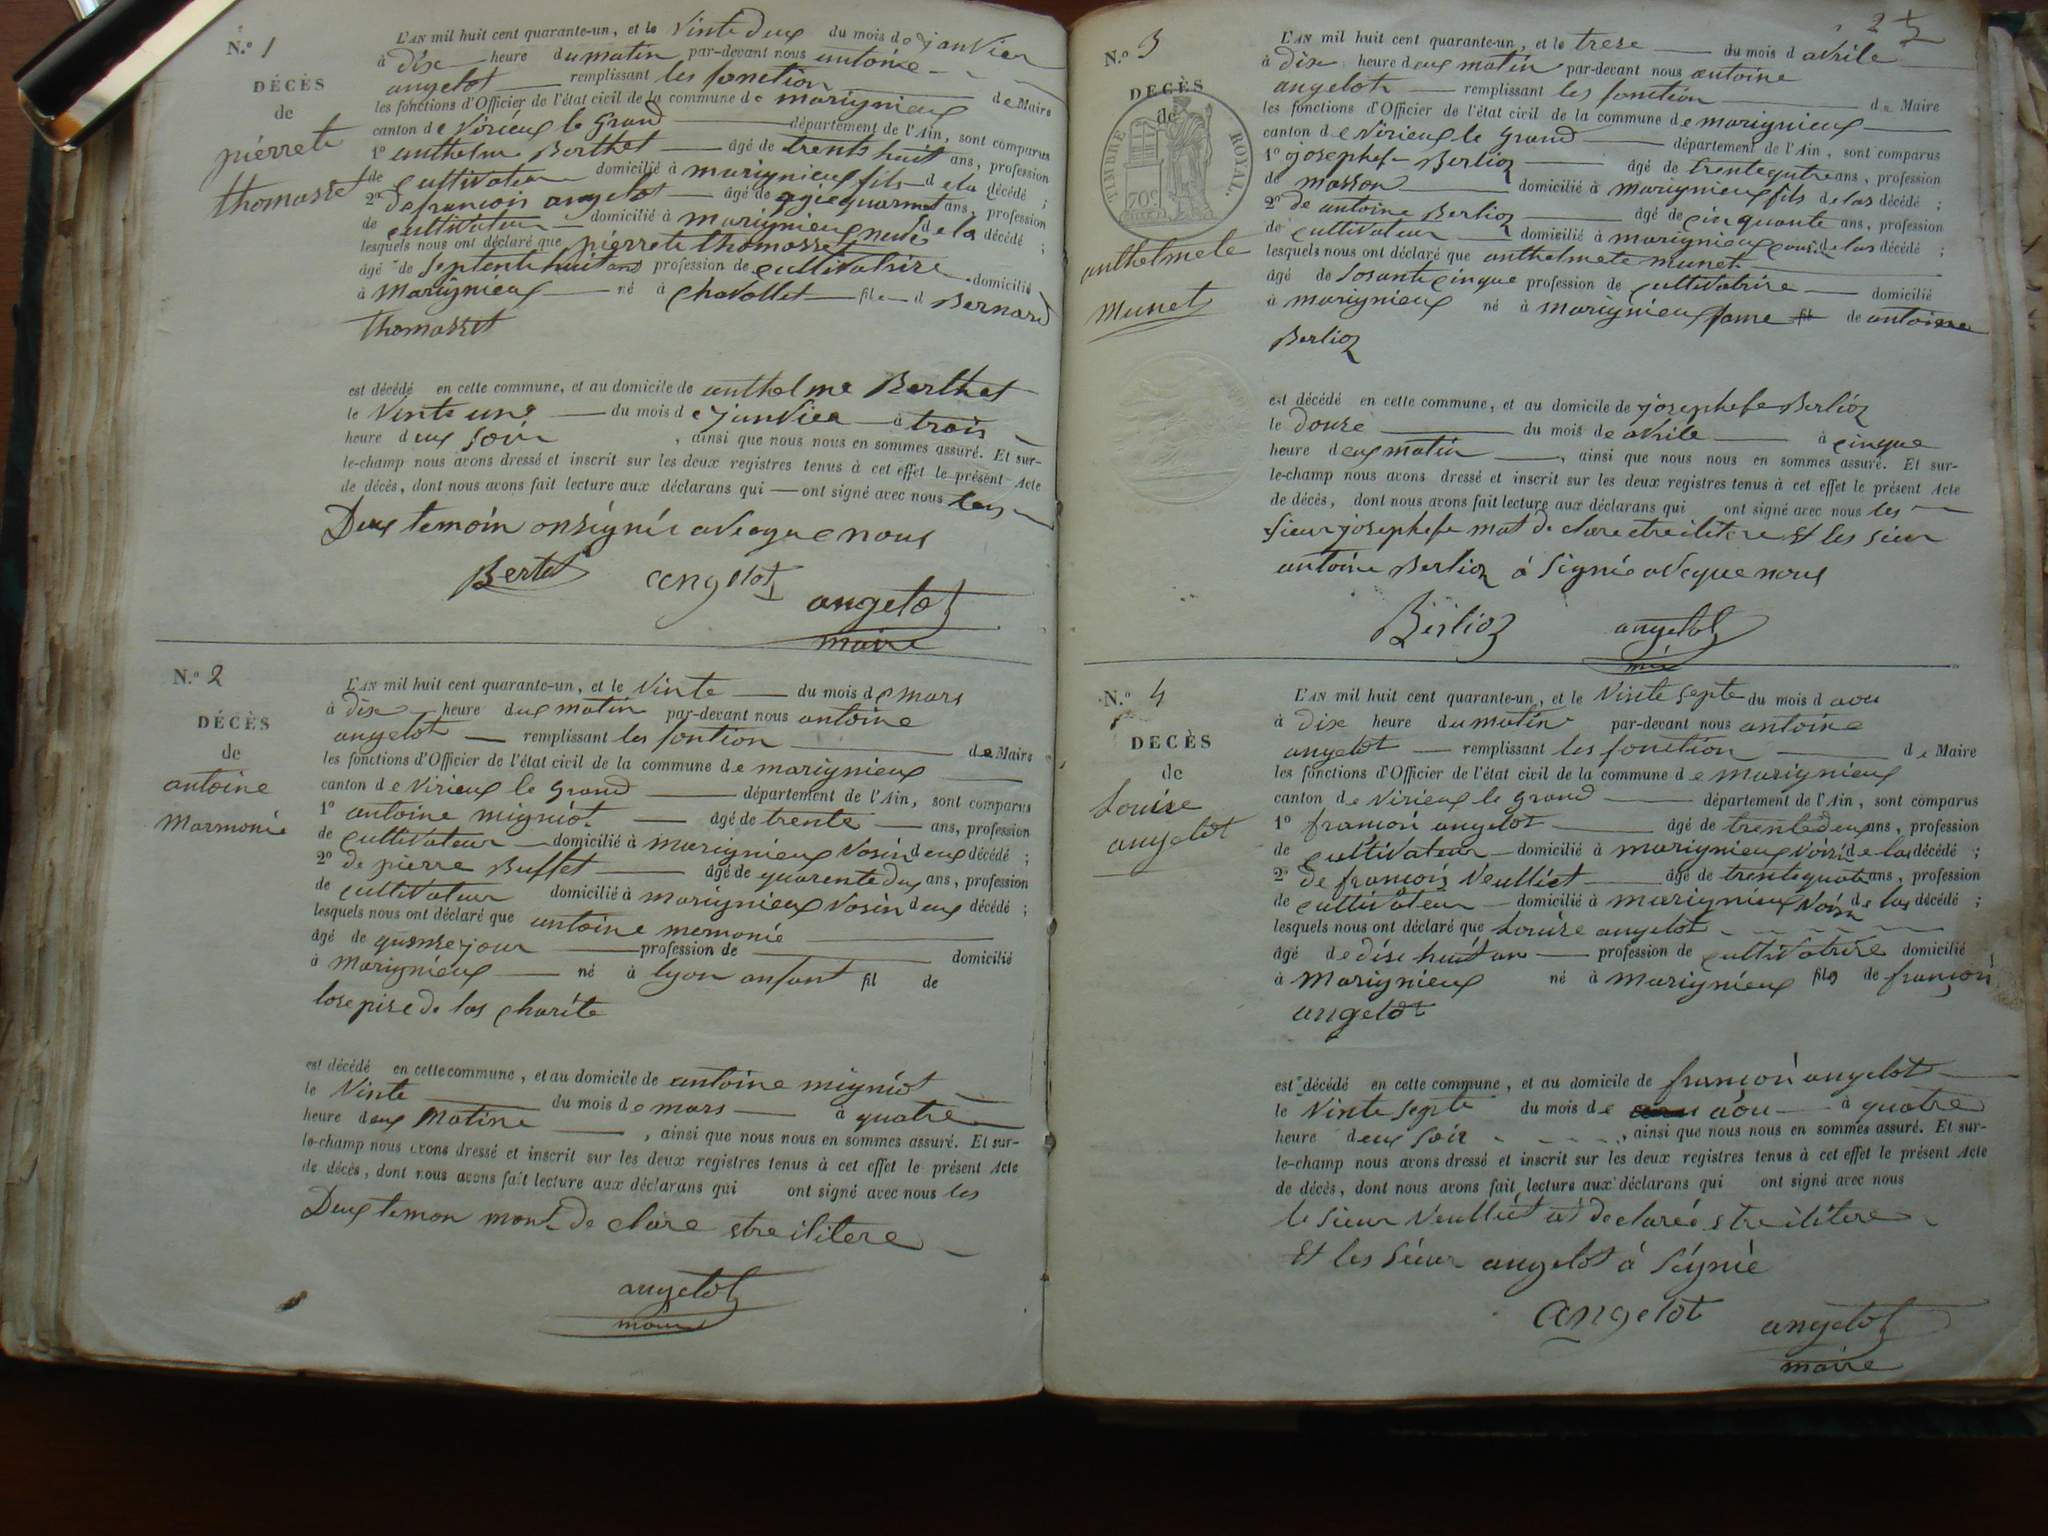 N.° 1
DÉCÈS
de
pièrrete
thomasset
L'AN mil huit cent quarante-un, et le Vinte deux du mois de janvier
à dixe heure du matin par-devant nous antoine
angelot remplissant les fonction de Maire
les fonctions d'Officier de l'état civil de la commune de marignieux
canton de Virieux le grand département de l'Ain, sont comparus
1° anthelme Berthet âgé de trente huit ans, profession
de Cultivateur domicilié à marignieux fils de la décédé ;
2° de francoin angelot âgé de ans, profession
de cultivateur domicilié à marignieux neveu de la décédé ;
lesquels nous ont déclaré que pièrrete thomasset
âgé de septente huit ans profession de cultivatrire domicilié
à Marignieux né à Chavollet file d Bernard
thomasset
est décédé en cette commune, et au domicile de anthelme Berthet
le Vinte une du mois de janvier à trois
heure deux soir , ainsi que nous nous en sommes assuré. Et sur-
le-champ nous avons dressé et inscrit sur les deux registres tenus à cet effet le présent Acte
de décès, dont nous avons fait lecture aux déclarans qui ont signé avec nous les
Deux temoin on signée aveque nous
Bertet angelot angelot
maire
N.° 2
DÉCÈS
de
antoine
Marmonie
L'AN mil huit cent quarante-un, et le Vinte du mois de mars
à dixe heure deux matin par-devant nous antoine
angelot remplissant les fontion de Maire
les fonctions d'Officier de l'état civil de la commune de marignieux
canton de Virieux le grand département de l'Ain, sont comparus
1° antoine migniot âgé de trente ans, profession
de cultivateur domicilié à marignieux vosin deux décédé ;
2° de pierre Buffet âgé de quarente deux ans, profession
de cultivateur domicilié à marignieux vosin deux décédé ;
lesquels nous ont déclaré que antoine memonie
âgé de quinse jour profession de domicilié
à Marignieux né à lyon anfant fil de
lose pise de las charite
est décédé en cette commune, et au domicile de antoine migniot
le Vinte du mois de mars à quatre
heure deux Matine , ainsi que nous nous en sommes assuré. Et sur-
le-champ nous avons dressé et inscrit sur les deux registres tenus à cet effet le présent Acte
de décès, dont nous avons fait lecture aux déclarans qui ont signé avec nous les
Deux temon mont de clare etre ilitere
angelot
maire
N.° 3
DÉCÈS
de
TIMBRE ROYAL.
70c
anthelmete
Munet
L'AN mil huit cent quarante-un, et le trese du mois d avrile
à dixe heure deux matin par-devant nous antoine
angelot remplissant les fonction de Maire
les fonctions d'Officier de l'état civil de la commune de marignieux
canton de Virieux le grand département de l'Ain, sont comparus
1° josephefe Berlioz âgé de trente qutre ans, profession
de masson domicilié à marignieux fils de las décédé ;
2° de antoine Berlioz âgé de cinquante ans, profession
de cultivateur domicilié à marignieux cousin de las décédé ;
lesquels nous ont déclaré que anthelmete munet
âgé de sosante cinque profession de cultivatrire domicilié
à marignieux né à marignieux fame fil de antoine
Berlioz
est décédé en cette commune, et au domicile de josephefe Berlioz
le douse du mois de avrile à cinque
heure deux matin , ainsi que nous nous en sommes assuré. Et sur-
le-champ nous avons dressé et inscrit sur les deux registres tenus à cet effet le présent Acte
de décès, dont nous avons fait lecture aux déclarans qui ont signé avec nous les
sieur josephefe mat de clare etre ilitere Et les sieur
antoine Berlioz á signié aveque nous
Berlioz angelot
N.° 4
DÉCÈS
de
Louise
angelot
L'AN mil huit cent quarante-un, et le Vinte septe du mois d aou
à dixe heure du matin par-devant nous antoine
angelot remplissant les fonction de Maire
les fonctions d'Officier de l'état civil de la commune de marignieux
canton de Virieux le grand département de l'Ain, sont comparus
1° francoin angelot âgé de trente deux ans, profession
de cultivateur domicilié à marignieux voisin de las décédé ;
2° de francois Veulliet âgé de trente quatre ans, profession
de cultivateur domicilié à marignieux voisin de las décédé ;
lesquels nous ont déclaré que Louise angelot
âgé de dise huit an profession de cultivatrire domicilié
à Marignieux né à Marignieux file de francoin
angelot
est décédé en cette commune, et au domicile de francoin angelot
le Vinte septe du mois de aou à quatre
heure deux soir , ainsi que nous nous en sommes assuré. Et sur-
le-champ nous avons dressé et inscrit sur les deux registres tenus à cet effet le présent Acte
de décès, dont nous avons fait lecture aux déclarans qui ont signé avec nous
le sieur Veulliet at declaré etre ilitere
Et les sieur angelot á signié
angelot angelot
maire